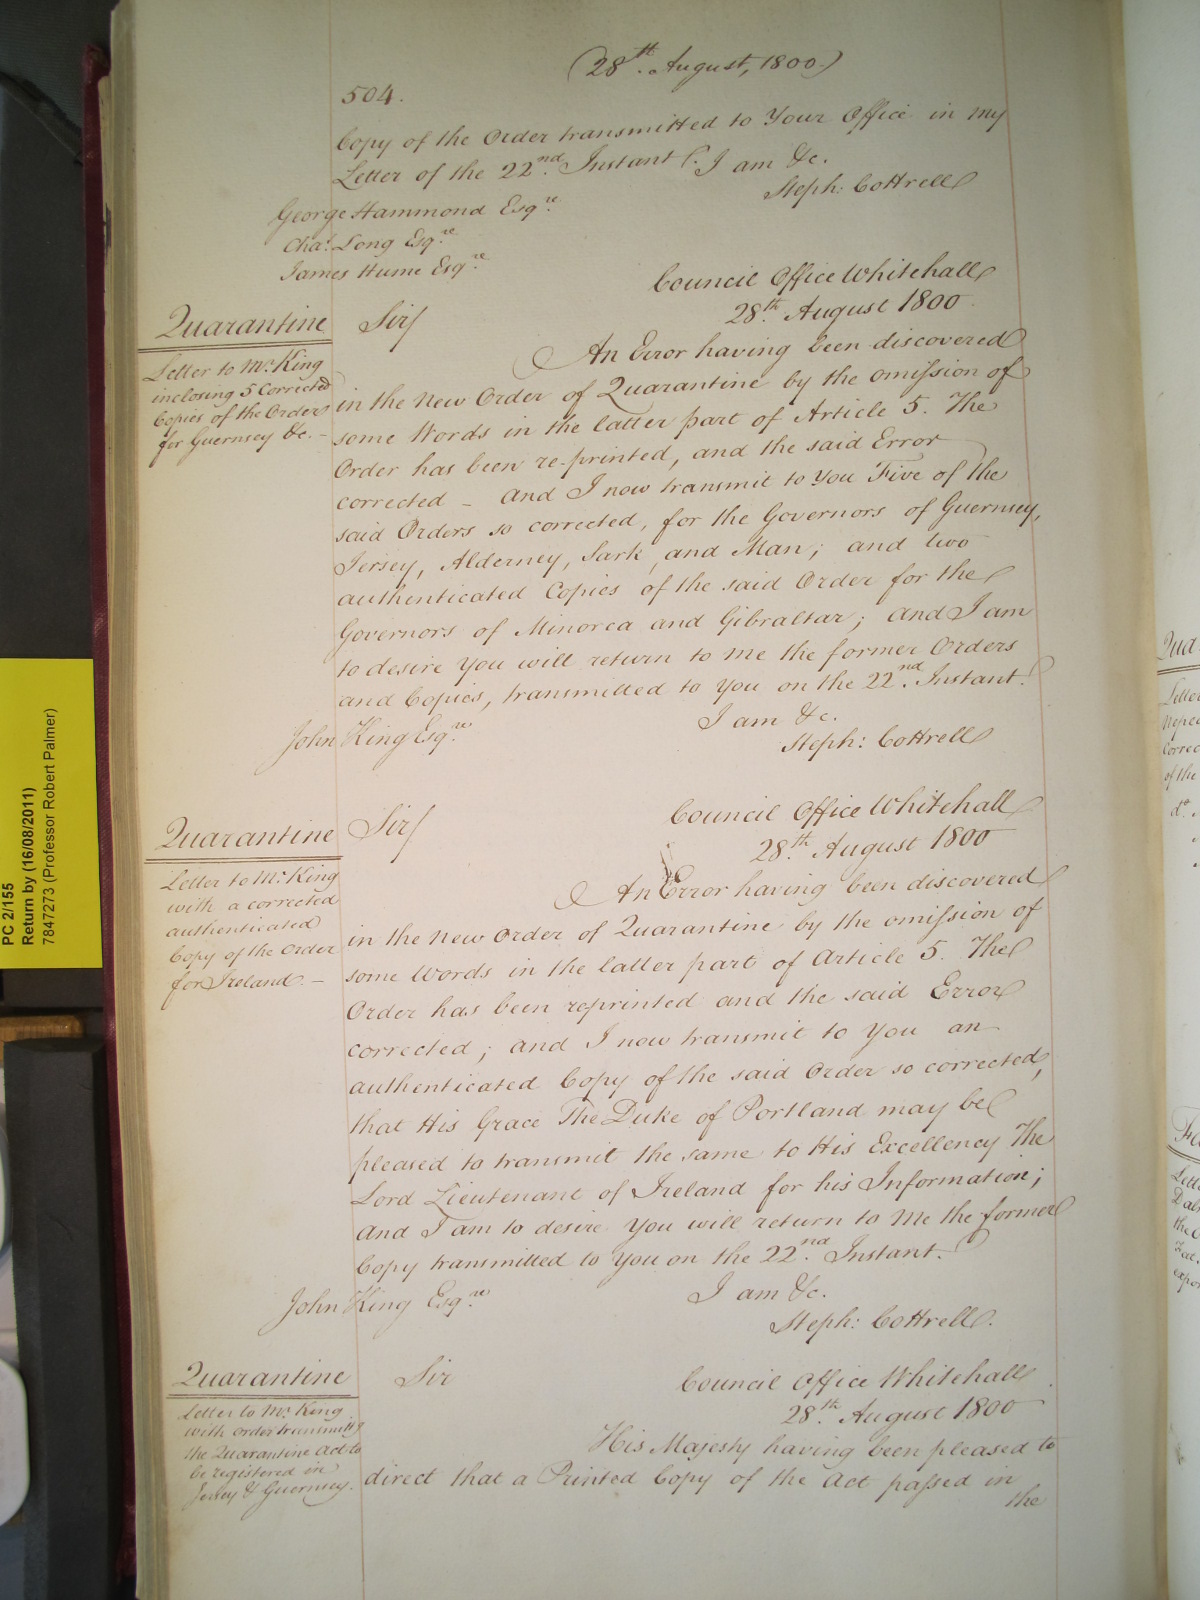 (28th. August, 1800.)
504.
Copy of the Order transmitted to Your Office in my
Letter of the 22nd. Instant. I am &c.
Steph: Cottrell
George Hammond Esqre.
Chas. Long Esqre.
James Hume Esqre.
Council Office Whitehall
28th. August 1800.
Quarantine
Letter to Mr. King
inclosing 5 Corrected
Copies of the Order
for Guernsey &c. –
Sir/
An Error having been discovered
in the New Order of Quarantine by the omission of
some Words in the latter part of Article 5. The
Order has been re-printed, and the said Error
corrected – and I now transmit to you Five of the
said Orders so corrected, for the Governors of Guernsey,
Jersey, Alderney, Sark, and Man; and two
authenticated Copies of the said Order for the
Governors of Minorca and Gibraltar; and I am
to desire you will return to me the former Orders
and Copies, transmitted to You on the 22nd. Instant.
I am &c.
John King Esqre.
Steph: Cottrell
Council Office Whitehall
28th. August 1800
Quarantine
Letter to Mr. King
with a corrected
authenticated
Copy of the Order
for Ireland. –
Sir/
An Error having been discovered
in the New Order of Quarantine by the omission of
some Words in the latter part of Article 5. The
Order has been reprinted and the said Error
corrected; and I now transmit to You an
authenticated Copy of the said Order so corrected,
that His Grace The Duke of Portland may be
pleased to transmit the same to His Excellency The
Lord Lieutenant of Ireland for his Information;
and I am to desire You will return to Me the former
Copy transmitted to You on the 22nd. Instant.
I am &c.
John King Esqre.
Steph: Cottrell.
Quarantine
Letter to Mr. King
with order transmitg
the Quarantine Act to
be registered in
Jersey & Guernsey.
Sir
Council Office Whitehall
28th. August 1800
His Majesty having been pleased to
direct that a Printed Copy of the Act passed in
the
PC 2/155
Return by (16/08/2011)
7847273 (Professor Robert Palmer)